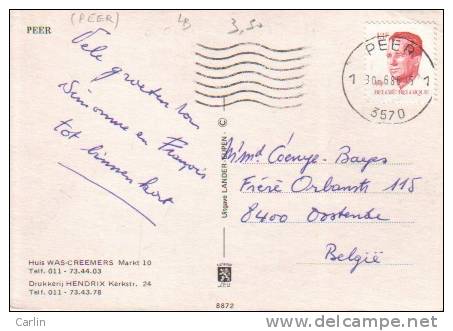 (PEER)
LB
3,50
PEER
PEER
1 30-6 86 1
3570
BELGIË-BELGIQUE
Vele groeten van
Simonne en François
tot binnen kort
Uitgave LANDER EUPEN - ©
M. Md Coenye-Bayes
Frère Orbanstr 115
8400 Oostende
België
Huis WAS-CREEMERS Markt 10
Telf. 011 - 73.44.03
Drukkerij HENDRIX Kerkstr. 24
Telf. 011 - 73.43.78
8872
Carlin
delcampe.net